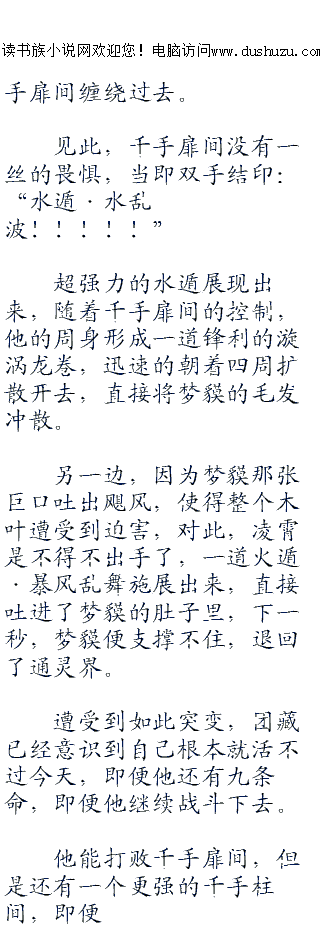 读书族小说网欢迎您！电脑访问www.dushuzu.com
手扉间缠绕过去。
见此，千手扉间没有一
丝的畏惧，当即双手结印：
“水遁·水乱
波！！！！！”
超强力的水遁展现出
来，随着千手扉间的控制，
他的周身形成一道锋利的漩
涡龙卷，迅速的朝着四周扩
散开去，直接将梦貘的毛发
冲散。
另一边，因为梦貘那张
巨口吐出飓风，使得整个木
叶遭受到迫害，对此，凌霄
是不得不出手了，一道火遁
·暴风乱舞施展出来，直接
吐进了梦貘的肚子里，下一
秒，梦貘便支撑不住，退回
了通灵界。
遭受到如此突变，团藏
已经意识到自己根本就活不
过今天，即便他还有九条
命，即便他继续战斗下去。
他能打败千手扉间，但
是还有一个更强的千手柱
间，即便